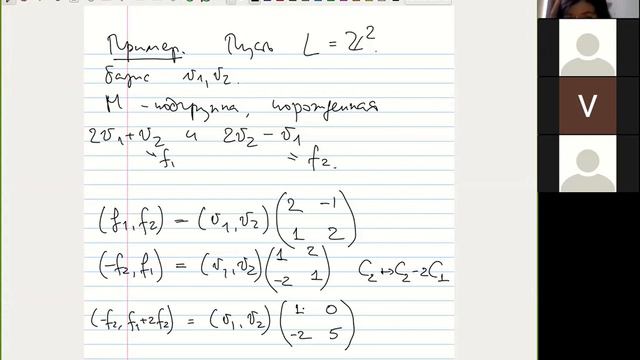 Пример. Пусть L = ℤ².
базис v₁, v₂.
M - подгруппа, порожденная
2v₁+v₂ и 2v₂ − v₁
= f₁ = f₂.
(f₁, f₂) = (v₁, v₂) (2 −1
1 2)
(−f₂, f₁) = (v₁, v₂) (1 2
−2 1) C₂ ↔ C₂−2C₁
(−f₂, f₁+2f₂) = (v₁, v₂) (1 0
−2 5)
V